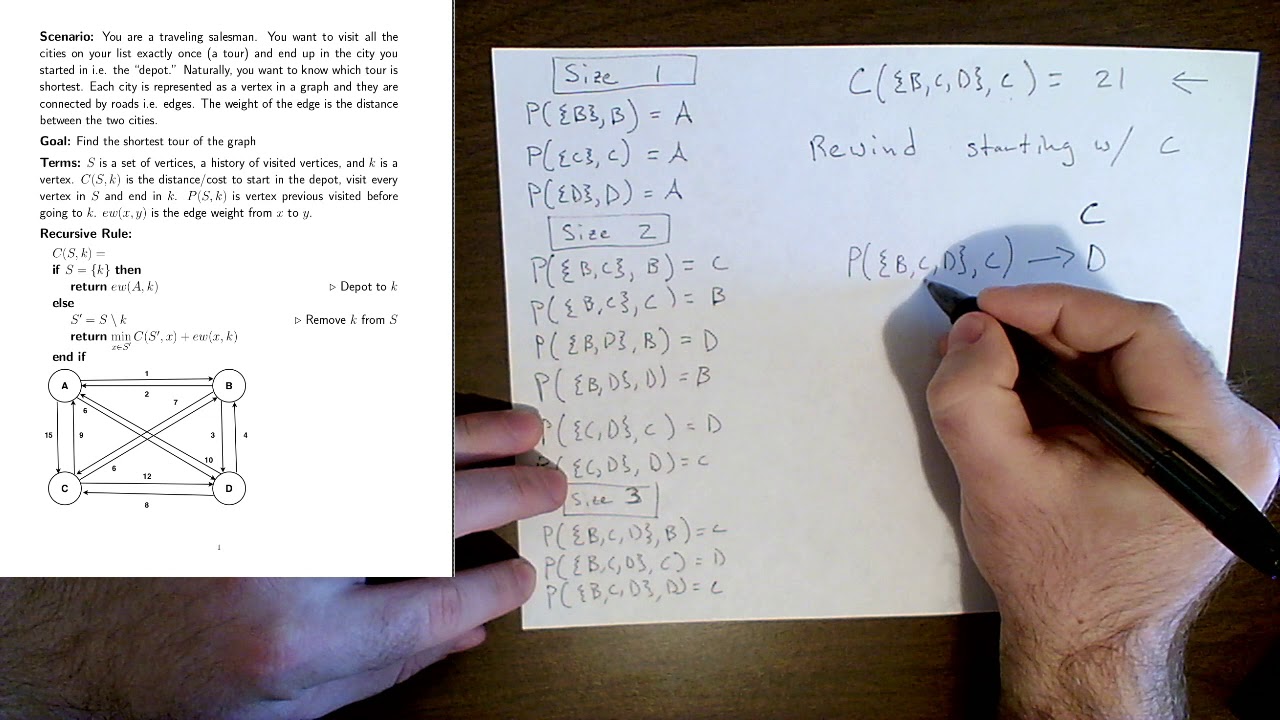 Scenario: You are a traveling salesman. You want to visit all the
cities on your list exactly once (a tour) and end up in the city you
started in i.e. the "depot." Naturally, you want to know which tour is
shortest. Each city is represented as a vertex in a graph and they are
connected by roads i.e. edges. The weight of the edge is the distance
between the two cities.
Goal: Find the shortest tour of the graph
Terms: S is a set of vertices, a history of visited vertices, and k is a
vertex. C(S, k) is the distance/cost to start in the depot, visit every
vertex in S and end in k. P(S, k) is vertex previous visited before
going to k. ew(x, y) is the edge weight from x to y.
Recursive Rule:
C(S, k) =
if S = {k} then
return ew(A, k) ▷ Depot to k
else
S′ = S \ k ▷ Remove k from S
return min C(S′, x) + ew(x, k)
x∈S′
end if
A 1 B
2
6 7
15 9 3 4
6 10
C 12 D
8
1
Size 1
P({B}, B) = A
P({C}, C) = A
P({D}, D) = A
Size 2
P({B,C}, B) = C
P({B,C}, C) = B
P({B,D}, B) = D
P({B,D}, D) = B
P({C,D}, C) = D
P({C,D}, D) = C
Size 3
P({B,C,D}, B) = C
P({B,C,D}, C) = D
P({B,C,D}, D) = C
C({B,C,D}, C) = 21 ←
Rewind starting w/ C
C
P({B,C,D}, C) → D